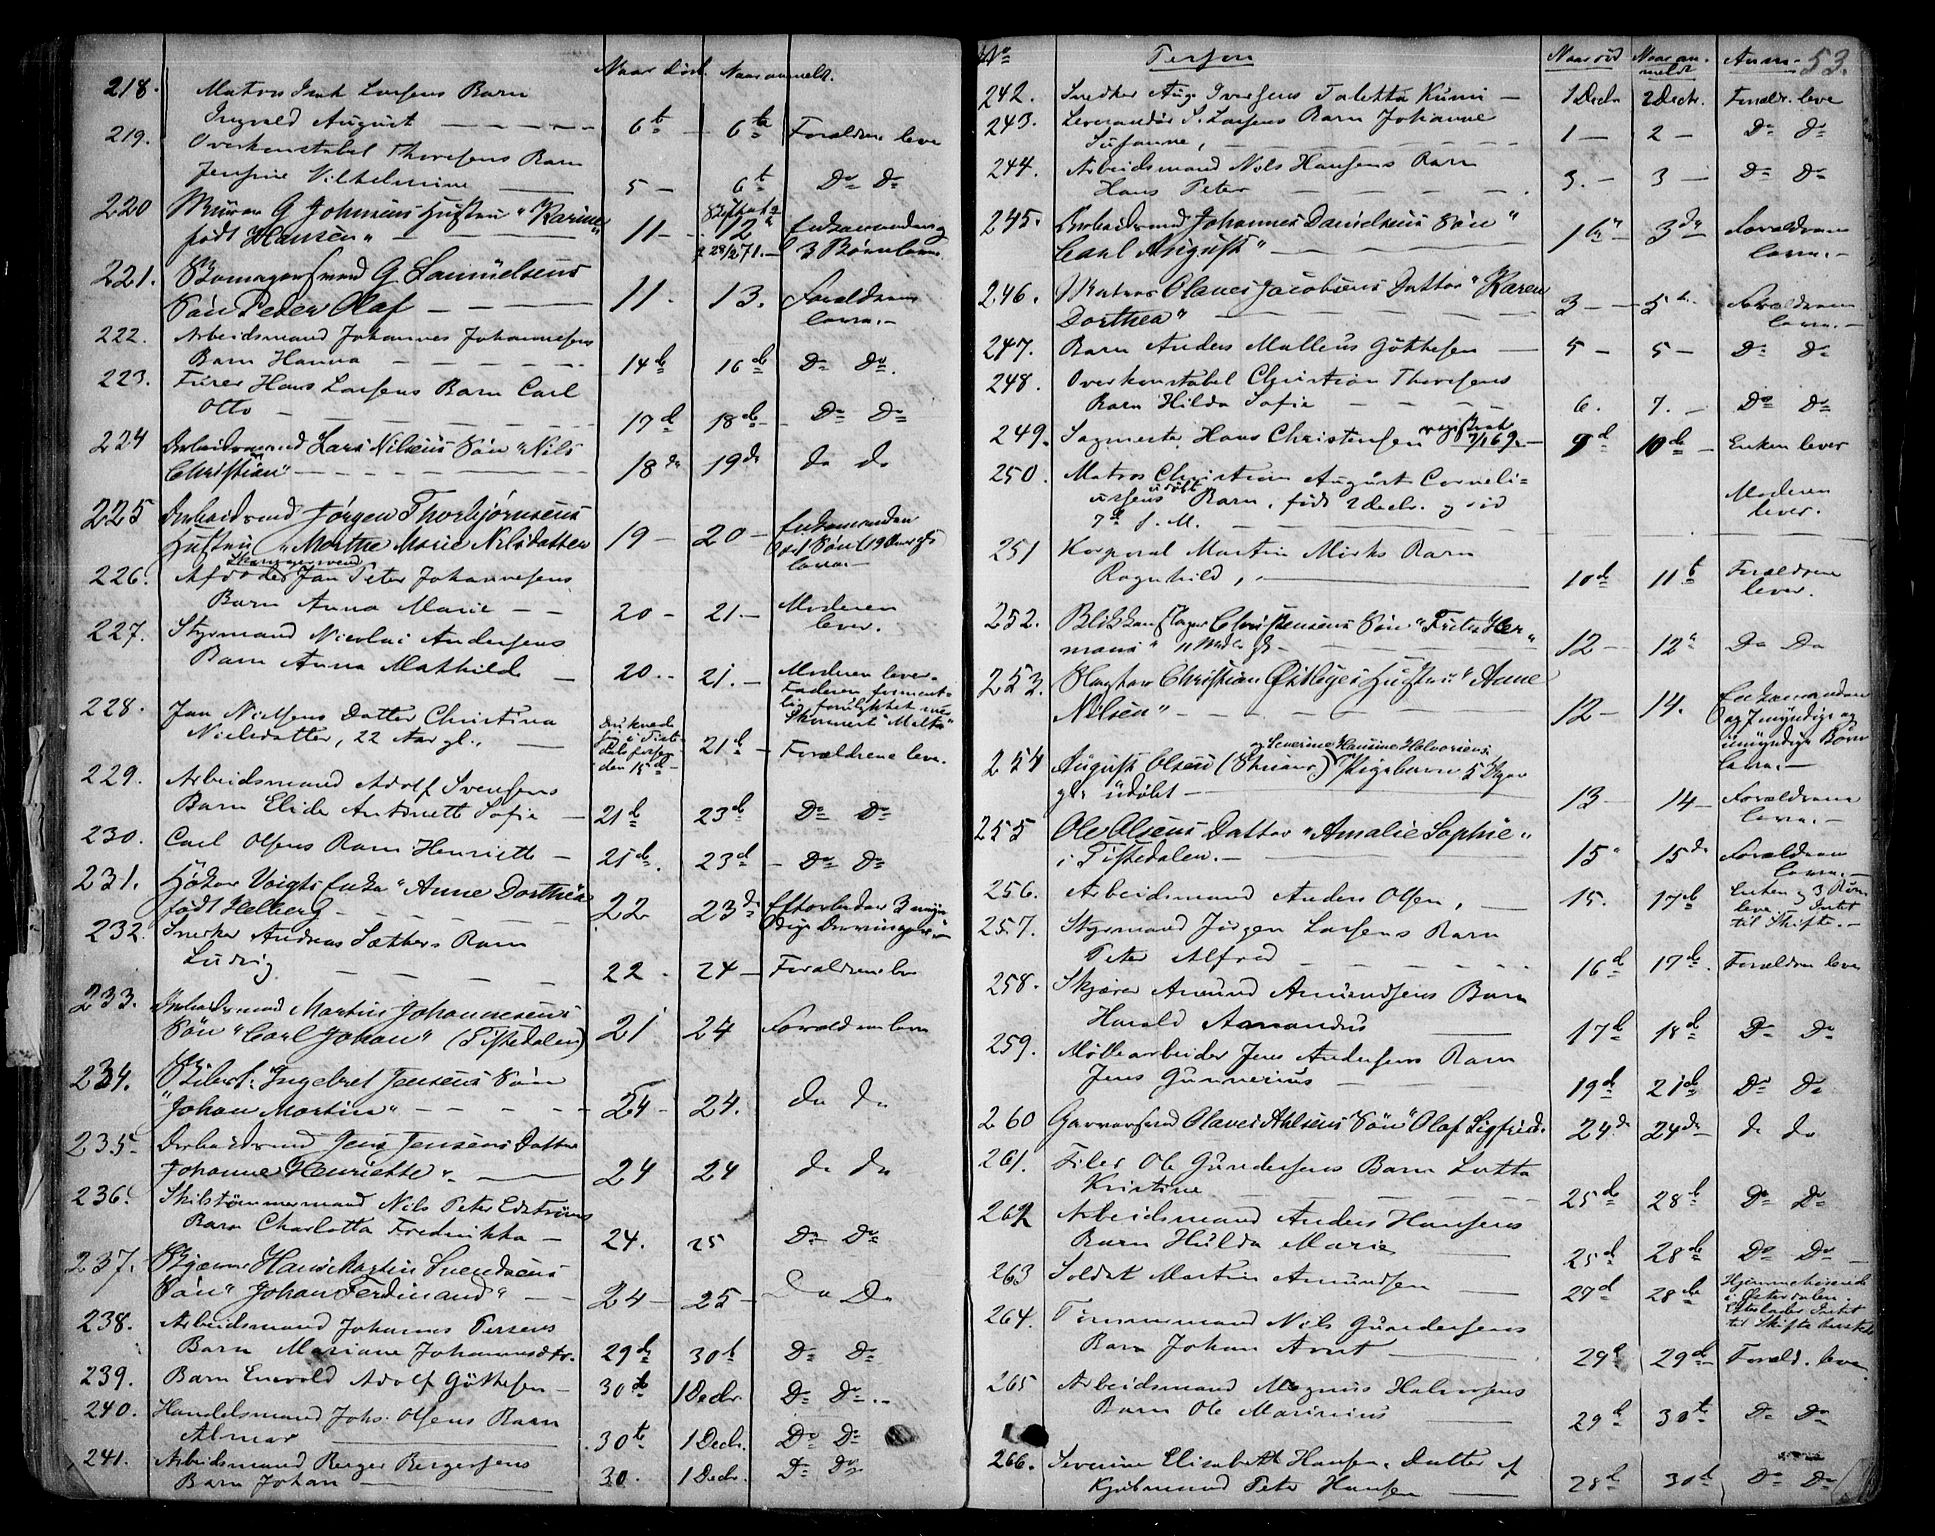 Naar död. Naar anmeldt.
218. Matros Isak Larsens Barn
Ingvald August — 6te — 6te Forældrene leve
219. Overkonstabel Thoresens Barn
Jensine Vilhelmine — 5 — 6te Do Do
220 Murer G Johnsens Hustru "Karine
født Hansen" — 11 — 12 Enkemanden og
28/2 71. — 3 Børn leve
221. G Samuelsens
Søn Peder Olaf — 11. 13. Forældrene
leve. —
222. Arbeidsmand Johannes Johannesens
Barn Hanna — 14de 16de Do Do.
223. Furer Hans Larsens Barn Carl
Otto — 17d 18de Do Do
224 Arbeidsmand Lars Nilsens Søn "Nils
Christian" — 18de 19de do do
225 Arbeidsmd Jørgen Thorbjørnsens
Hustru "Marthe Marie Nilsdatter 19 — 20 — Enkemanden
leve. —
226. Afdøde Jan Peter Johannesens
Barn Anna Marie — 20 — 21. — Moderen
lever.
227. Styrmand Nicolai Andersens
Barn Anna Mathilde — 20. — 21. — Moderen lever.
Faderen forment-
lig forulykket med
Skonnert "Malta"
228. Jan Nielsens Datter Christina
Nielsdatter, 22 Aar gl., — den 15de — 21de — Forældrene leve.
229. Arbeidsmand Adolf Svensens
Barn Elide Antonette Sofie — 21de 23de Do Do
230. Carl Olsens Barn Henriette — 21de. 23d — Do Do
231. Høker Voigts Enke "Anne Dorthea
født Helberg — 22 23de Efterlader 3 myn-
dige Arvinger. —
232. Snedker Andreas Sæthers Barn
Ludvig — 22. 24 — Forældrene leve
233. Arbeidsmand Martin Johannesens
Søn "Carl Johan" (Tistedalen) 21 24 Forældrene leve
234. Ingebret Jensens Søn
"Johan Martin" — 24 — 24. do do
235. Arbeidsmd Jens Jensens Datter
Johanne Henriette" — 24 24 do do
236. Skibstømmermand Nils Peter Edstrøms
Barn Charlotta Fredrikka — 24. 25 Do Do
237. Hans Martin Svendsens
Søn "Johan Ferdinand" — 24 — 25 — Do Do
238. Arbeidsmand Johannes Persens
Barn Mariane Johannesdtr. 29de 30te Do Do
239. Barn Enevold Adolf Gøthesen — 30te 1 Decbr. Do Do. —
240. Handelsmand Johs. Olsens Barn
Almar — 30te 1 Decbr. Do Do
241. Arbeidsmand Berger Bergersens
Barn Johan — 30. 1 Decbr. Do Do
No Person Naar död Naar an-
meldt Anm. 53.
242. Snedker Aug. Iversens Toletta Kumi — 1 Decbr 2 Decbr. Forældr. leve
243. Leverandör S. Larsens Barn Johanne
Susanne, — 1 — 2 — Do Do
244. Arbeidsmand Nils Hansens Barn
Hans Peter — 3. — 3 — Do Do
245. Arbeidsmd Johannes Danielsens Søn "
Carl August" — 1ste 3die Forældrene
leve. —
246. Matros Olaves Jacobsens Datter "Karen
Dorthea" — 3 — 5te. Forældrene
leve. —
247. Barn Anders Malleus Gøthesen — 5 — 5 — Do Do
248. Overkonstabel Christian Thoresens
Barn Hilda Sofie — 6. 7. — Do Do
249. Sagmester Hans Christensen registrat 7/1 69. — 9d 10de — Enken lever
250. Matros Christian August Corneli-
usens udøbt Barn, født 2 Decbr. og död
7de d. M. — Moderen
lever.
251 Korporal Martin Mirks Barn
Ragnhild, — 10de 11te Forældrene
lever.
252. Blikkenslager Christensens Søn "Fritz Her-
mann" — 12 — 12te Do Do
253. Slagter Christian Hustru "Anne
Nilsen" — 12 — 14. Enkemanden
og 7 myndige og
umyndige Børn
leve. —
254 August Olsen og Severine Hansine Halvorsens Pigebarn 5 Dage
gl. udøbt — 13 — 14 — Forældrene
leve. —
255 Ole Olsens Datter "Amalie Sophie"
i Tistedalen. — 15 15de Forældrene
leve. —
256. Arbeidsmand Anders Olsen, — 15. 17de Enken og 3 Børn
leve — Intet
til Skifte. —
257. Styrmand Jörgen Larsens Barn
Peter Alfred — 16de 17de. Forældrene leve
258. Skjærer Amund Amundsens Barn
Harald Amandus — 17de 18de Do Do
259. Møllearbeider Jens Andersens Barn
Jens Gunnerius — 19de 21de Do Do
260 Garversvend Olaves Ahlsens Søn "Olaf Sigfried. 24de 24de — do do
261. Filer Ole Gundersens Barn Lotta
Kristine — 25de 28de Do Do
262 Arbeidsmand Anders Hansens
Barn Hulda Marie — 25d 28de Do Do —
263 Soldat Martin Amundsen — 27d 28de Hjemmehørende
i Østerdalen.
Efterlader Intet
til Skifte
264. Tömmermand Nils Gundersens
Barn Johan Arnt — 29d 29de — Foræld. leve
265 Arbeidsmand Magnus Halvorsens
Barn Ole Marinius — 29de 30te Do Do
266. Severine Elisabeth Hansen, Datter af
Kjøbmand Peter Hansen — 28de 30te Do Do